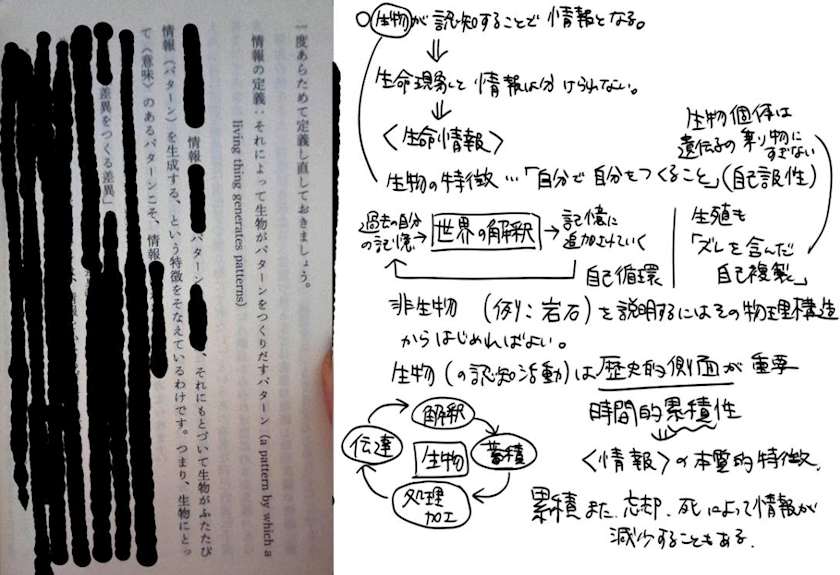 一度あらためて定義し直しておきましょう。
情報の定義：それによって生物がパターンをつくりだすパターン（a pattern by which a
living thing generates patterns）
情報 パターン 、それにもとづいて生物がふたたび
情報（パターン）を生成する、という特徴をそなえているわけです。つまり、生物にとっ
て〈意味〉のあるパターンこそ、情報
差異をつくる差異」
○生物が認知することで情報となる。
⇓
生命現象と情報は分けられない。
⇓
〈生命情報〉
生物個体は
遺伝子の乗り物に
すぎない
生物の特徴…「自分で自分をつくること」(自己言及性)
過去の自分
の記憶→
世界の解釈
→記憶に
追加上書していく
自己循環
生殖も
「ズレを含んだ
自己複製」
非生物（例：岩石）を説明するにはその物理構造
からはじめればよい。
生物（の認知活動）は歴史的側面が重要
時間的累積性
〈情報〉の本質的特徴。
解釈
伝達
生物
蓄積
処理
加工
累積また、忘却、死によって情報が
減少することもある。